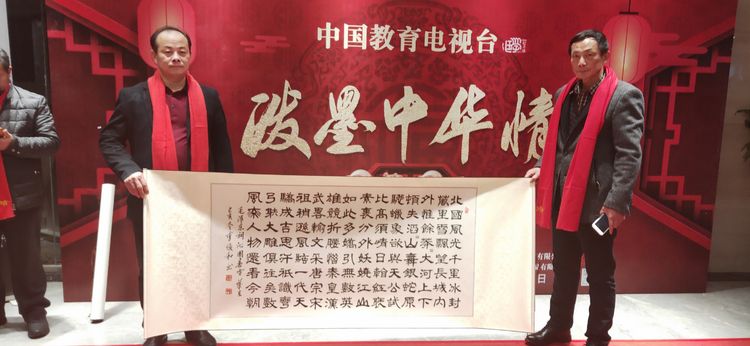 中国教育电视台
泼墨中华情
北國風光千里冰封
萬里雪飄望長城內
外惟餘莽莽大河上下
頓失滔滔山舞銀蛇原
馳蠟象欲與天公試
比高須晴日看紅裝
素裹分外妖嬈江山
如此多嬌引無數英
雄競折腰惜秦皇漢
武略輸文采唐宗宋
祖稍遜風騷一代天
驕成吉思汗祇識彎
弓射大雕俱往矣數
風流人物還看今朝
毛澤東詞沁園春雪
己亥冬
有限
有限
日